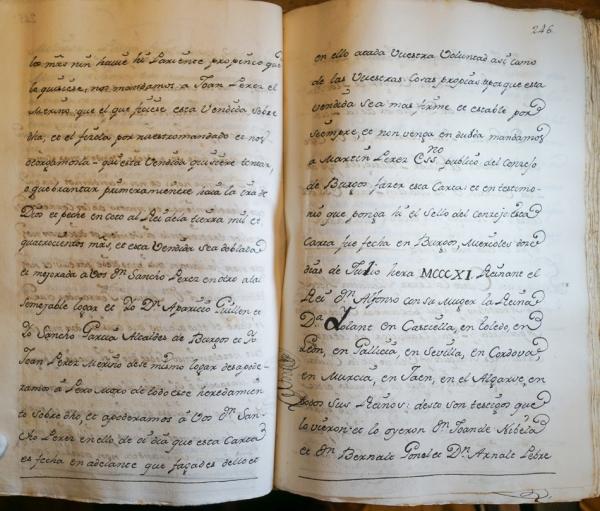 los mrs nin haver hi Pariente propinco que
la quisiese, nos mandamos a Joan Perez el
Merino que el que ficiese esta Vendida sobre
dha, et el fizola por nuestro mandado et nos
otorgamosla = qui esta Vendida quisiere tentar,
o quebrantar primeramiente haia la ira de
Dios et peche en coto al Rei de la tierra mil et
quatrocientos mrs, et esta Vendida sea doblada
et mejorada a Vos Dn Sancho Perez en otro al tal
semejable logar et Yo Dn Aparicio Guillen et
Yo Sancho Garcia Alcaldes de Burgos et Yo
Joan Perez Merino dels mismo logar desapode-
ramos a Pero Moro de todo este heredamien
to sobre dho, et apoderamos a Vos Dn San-
cho Perez en ello de el dia que esta Carta
es fecha en adelante que façades dello et
246
en ello atada Vuestra Voluntad asi como
de las Vuestras Cosas propias: et porque esta
vendida sea mas firme et estable por
siempre, et non venga en dubda mandamos
a Martin Perez Essno publico del conzejo
de Burgos fazer esta Carta: et en testimo-
nio que ponga hi el Sello del conzejo esta
Carta fue fecha en Burgos, Miercoles doce
dias de Julio hera MCCCXI. Reinant el
Rei Dn Alfonso con su Muger la Reina
Da Yolant en Castiella, en Toledo, en
Leon, en Gallicia, en Sevilla, en Cordova,
en Murcia, en Jaen, en el Algarve, en
todos sus Reinos: desto son testigos que
lo vieron et lo oyeron Dn Joan de
et Dn Bernalt et Dn Arnalt Pedre